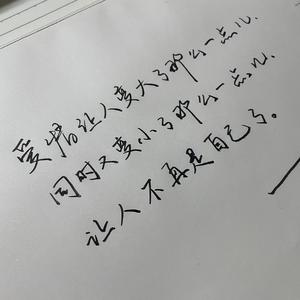 爱情让人变大了那么一点儿.
同时又变小了那么一点儿.
让人不再是自己了。